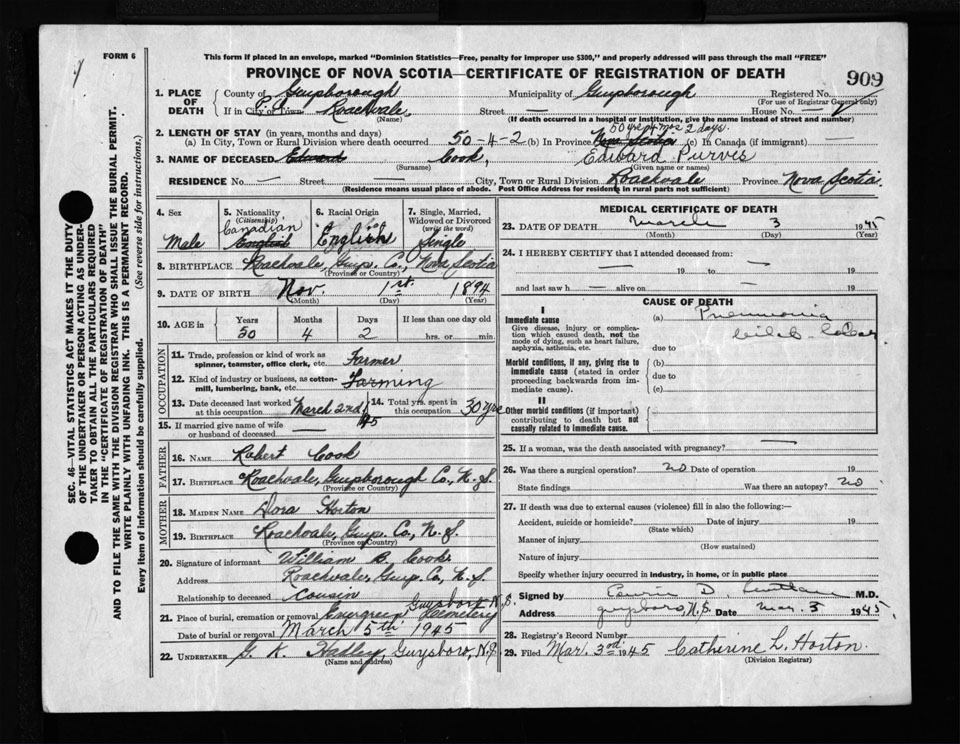 FORM 6
This form if placed in an envelope, marked "Dominion Statistics—Free, penalty for improper use $300," and properly addressed will pass through the mail "FREE"
PROVINCE OF NOVA SCOTIA—CERTIFICATE OF REGISTRATION OF DEATH
909
1. PLACE OF DEATH County of Guysborough Municipality of Guysborough Registered No.
(For use of Registrar General only)
If in City or Town Roachvale Street — House No. —
(Name) (If death occurred in a hospital or institution, give the name instead of street and number)
50 yrs 4 mos 2 days.
2. LENGTH OF STAY (in years, months and days)
(a) In City, Town or Rural Division where death occurred 50-4-2 (b) In Province Nova Scotia (c) In Canada (if immigrant) —
3. NAME OF DECEASED Edward Cook, Edward Purves
(Surname) (Given name or names)
RESIDENCE No. — Street City, Town or Rural Division Roachvale Province Nova Scotia
(Residence means usual place of abode. Post Office Address for residents in rural parts not sufficient)
4. Sex Male
5. Nationality (Citizenship) Canadian English
6. Racial Origin English
7. Single, Married, Widowed or Divorced (write the word) Single
8. BIRTHPLACE Roachvale, Guys. Co., Nova Scotia
(Province or Country)
9. DATE OF BIRTH Nov. 1st. 1894
(Month) (Day) (Year)
10. AGE in Years Months Days If less than one day old
50 4 2 hrs. or min.
OCCUPATION
11. Trade, profession or kind of work as spinner, teamster, office clerk, etc. Farmer
12. Kind of industry or business, as cotton-mill, lumbering, bank, etc. Farming
13. Date deceased last worked at this occupation March 2nd 1945
14. Total yrs. spent in this occupation 30 yrs
15. If married give name of wife or husband of deceased —
FATHER
16. NAME Robert Cook
17. BIRTHPLACE Roachvale, Guysborough Co., N.S.
(Province or Country)
MOTHER
18. MAIDEN NAME Dora Horton
19. BIRTHPLACE Roachvale, Guys. Co., N.S.
(Province or Country)
20. Signature of informant William B. Cook
Address Roachvale, Guys. Co., N.S.
Relationship to deceased Cousin
21. Place of burial, cremation or removal Evergreen Cemetery Guysboro N.S.
Date of burial or removal March 5th 1945
22. UNDERTAKER G. K. Hadley, Guysboro, N.S.
(Name and address)
MEDICAL CERTIFICATE OF DEATH
23. DATE OF DEATH March 3 1945
(Month) (Day) (Year)
24. I HEREBY CERTIFY that I attended deceased from:
— 19 to — 19
and last saw h — alive on — 19
CAUSE OF DEATH
I
Immediate cause
Give disease, injury or complication which caused death, not the mode of dying, such as heart failure, asphyxia, asthenia, etc.
(a) Pneumonia
due to
Morbid conditions, if any, giving rise to immediate cause (stated in order proceeding backwards from immediate cause).
(b)
due to
(c)
II
Other morbid conditions (if important) contributing to death but not causally related to immediate cause.
25. If a woman, was the death associated with pregnancy? —
26. Was there a surgical operation? no Date of operation 19
State findings Was there an autopsy? no
27. If death was due to external causes (violence) fill in also the following:—
Accident, suicide or homicide? Date of injury 19
(State which)
Manner of injury
(How sustained)
Nature of injury
Specify whether injury occurred in industry, in home, or in public place
Signed by M.D.
Address Guysboro, N.S. Date Mar. 3 1945
28. Registrar's Record Number
29. Filed Mar. 3rd 1945 Catherine L. Horton
(Division Registrar)
SEC. 46—VITAL STATISTICS ACT MAKES IT THE DUTY
OF THE UNDERTAKER OR PERSON ACTING AS UNDER-
TAKER TO OBTAIN ALL THE PARTICULARS REQUIRED
IN THE "CERTIFICATE OF REGISTRATION OF DEATH"
AND TO FILE THE SAME WITH THE DIVISION REGISTRAR WHO SHALL ISSUE THE BURIAL PERMIT.
WRITE PLAINLY WITH UNFADING INK. THIS IS A PERMANENT RECORD.
Every item of information should be carefully supplied. (See reverse side for instructions.)